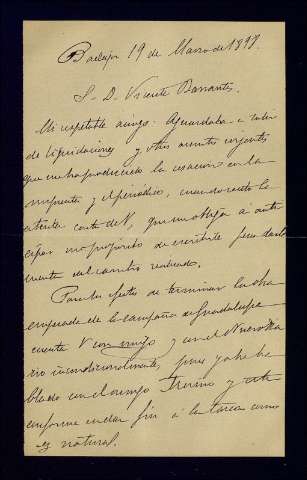 Badajoz 19 de Marzo de 1897.
S. D. Vicente Barrantes.
Mi respetable amigo: Aguardaba a salir
de liquidaciones y otros asuntos urjentes
que me ha producido la cesación en la
imprenta y el periódico, cuando recibo la
atenta carta de V, que me obliga á anti
cipar mi propósito de escribirle para darle
cuenta del cambio realizado.
Para los efectos de terminar la obra
empezada de la campaña de Guadalupe
cuenta V conmigo y con el Nuevo Dia
rio incondicionalmente, pues ya he ha
blado con el amigo y está
conforme en dar fin á la tarea como
es natural.